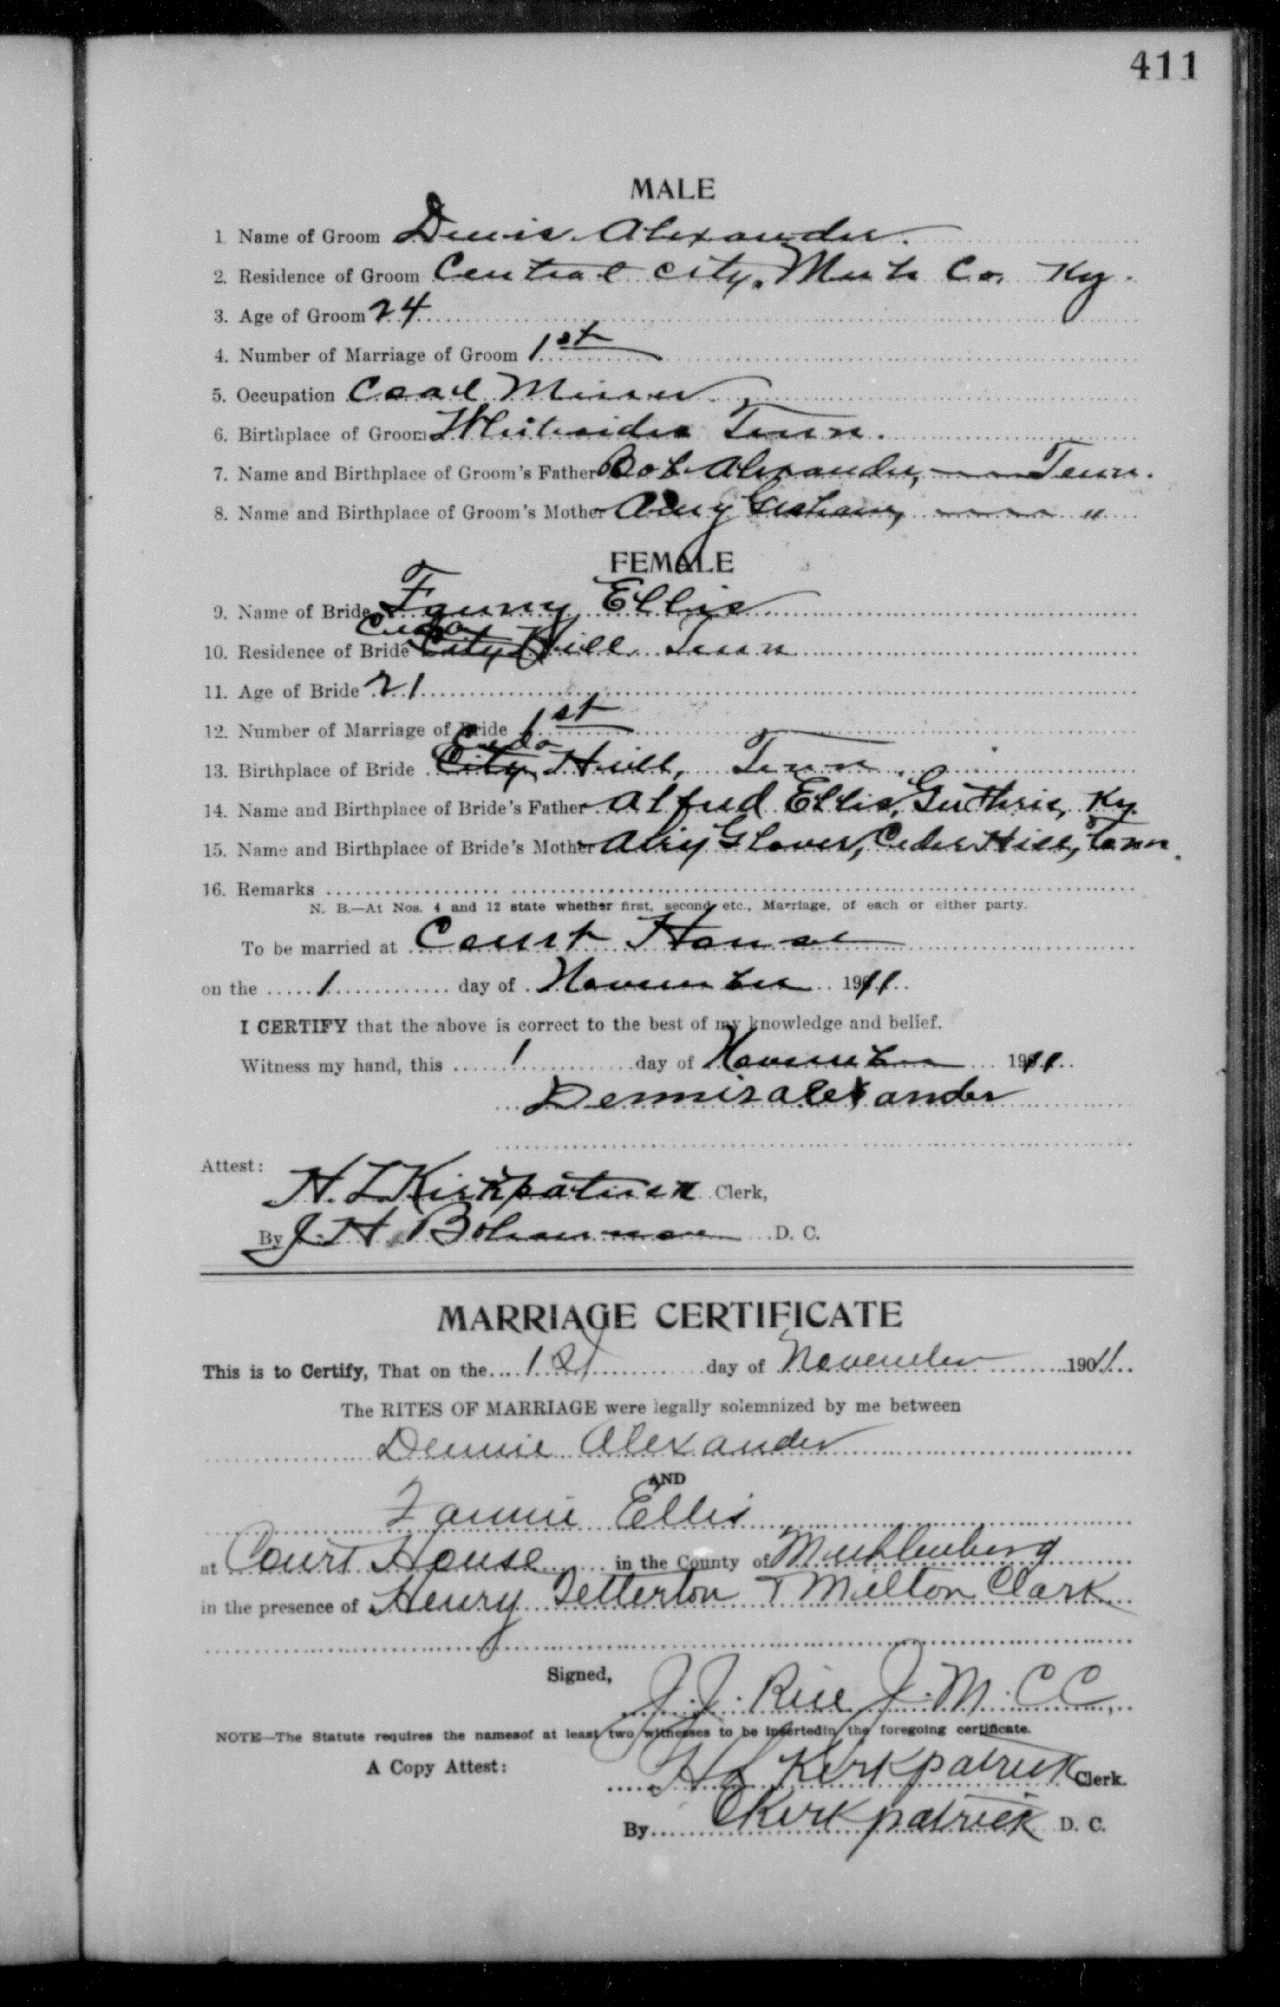 411
MALE
1 Name of Groom Dennis Alexander.
2. Residence of Groom Central City, Muh Co, Ky.
3. Age of Groom 24
4. Number of Marriage of Groom 1st
5. Occupation Coal Miner
6. Birthplace of Groom Whitesides Tenn.
7. Name and Birthplace of Groom's Father Bob Alexander, Tenn.
8. Name and Birthplace of Groom's Mother "
FEMALE
9. Name of Bride Fanny Ellis
Cedar
10. Residence of Bride City Hill Tenn
11. Age of Bride 21
12. Number of Marriage of Bride 1st
Cedar
13. Birthplace of Bride City Hill, Tenn.
14. Name and Birthplace of Bride's Father Alfred Ellis, Guthrie, Ky.
15. Name and Birthplace of Bride's Mother Airy Glover, Ceder Hill, Tenn.
16. Remarks
N. B.—At Nos. 4 and 12 state whether first, second, etc., Marriage, of each or either party.
To be married at Court House
on the 1 day of November 1911
I CERTIFY that the above is correct to the best of my knowledge and belief.
Witness my hand, this 1 day of November 1911
Dennis alexander
Attest:
H. L. Kirkpatrick Clerk,
By J. H. Bohannon D. C.
MARRIAGE CERTIFICATE
This is to Certify, That on the 1st day of November 19011
The RITES OF MARRIAGE were legally solemnized by me between
Dennie Alexander
AND
Fannie Ellis
at Court House in the County of Muhlenberg
in the presence of Henry Tetterton + Milton Clark
Signed,
J. J. Rice J. M. C C,
NOTE—The Statute requires the namesof at least two witnesses to be insertedin the foregoing certificate.
A Copy Attest:
H L Kirkpatrick Clerk.
By C Kirkpatrick D. C.